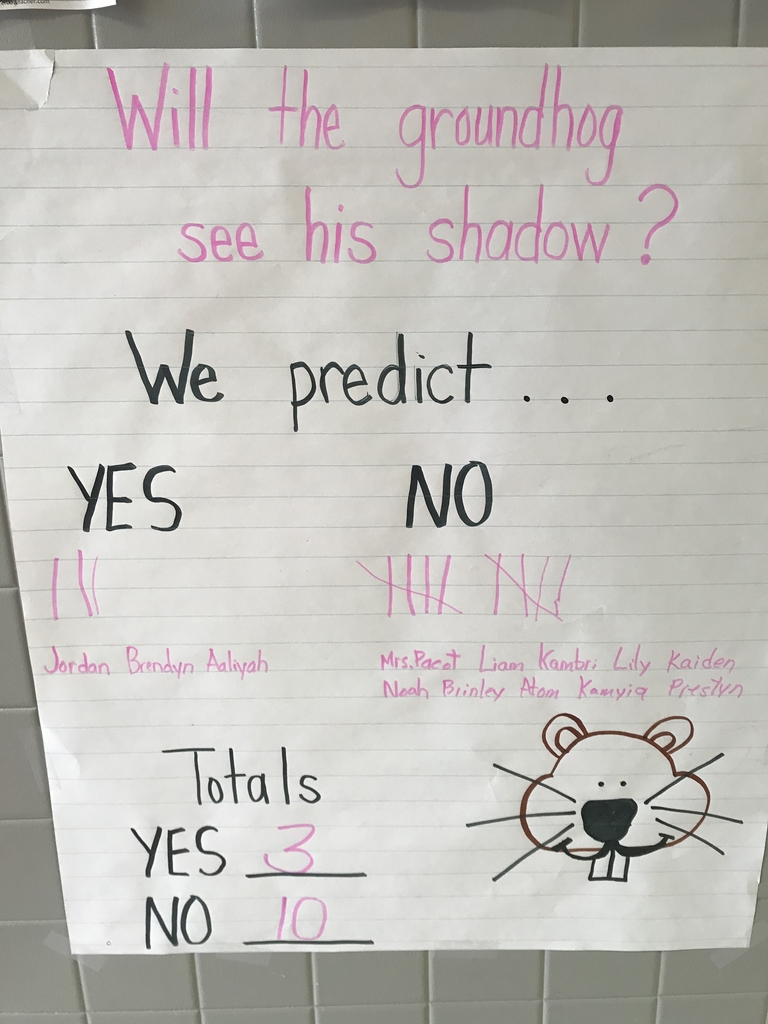 Will the groundhog
see his shadow?
We predict . . .
YES NO
Jordan Brendyn Aaliyah
Mrs. Pacot Liam Kambri Lily Kaiden
Noah Brinley Atom Kamyia Prestyn
Totals
YES 3
NO 10